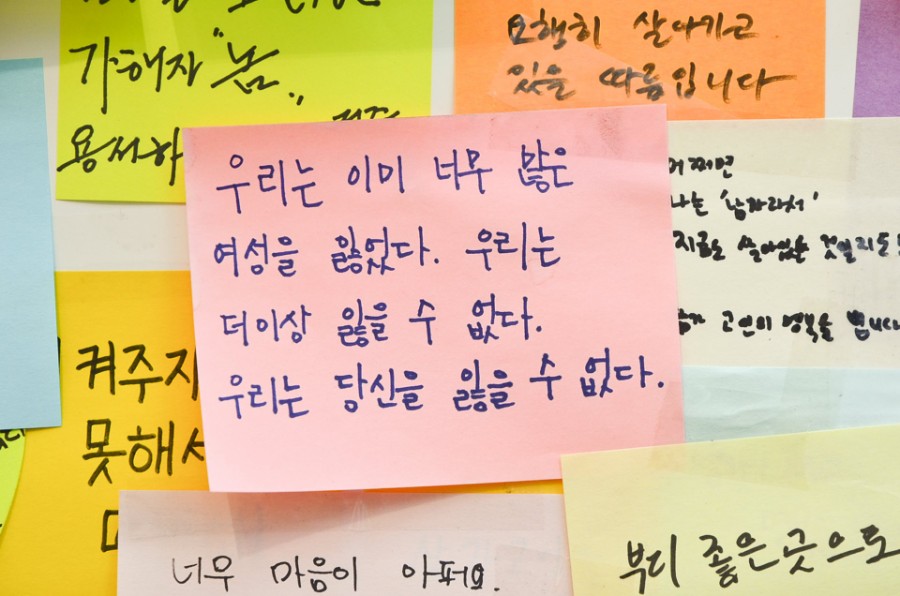 가해자 "놈"
용서하
요행히 살아가고
있을 따름입니다
우리는 이미 너무 많은
여성을 잃었다. 우리는
더이상 잃을 수 없다.
우리는 당신을 잃을 수 없다.
어쩌면
나는 '남자라서'
지금도 살아있는 것일지도
고인이 명복을 빕니다
켜주지
못해서
너무 마음이 아파요.
부디 좋은 곳으로